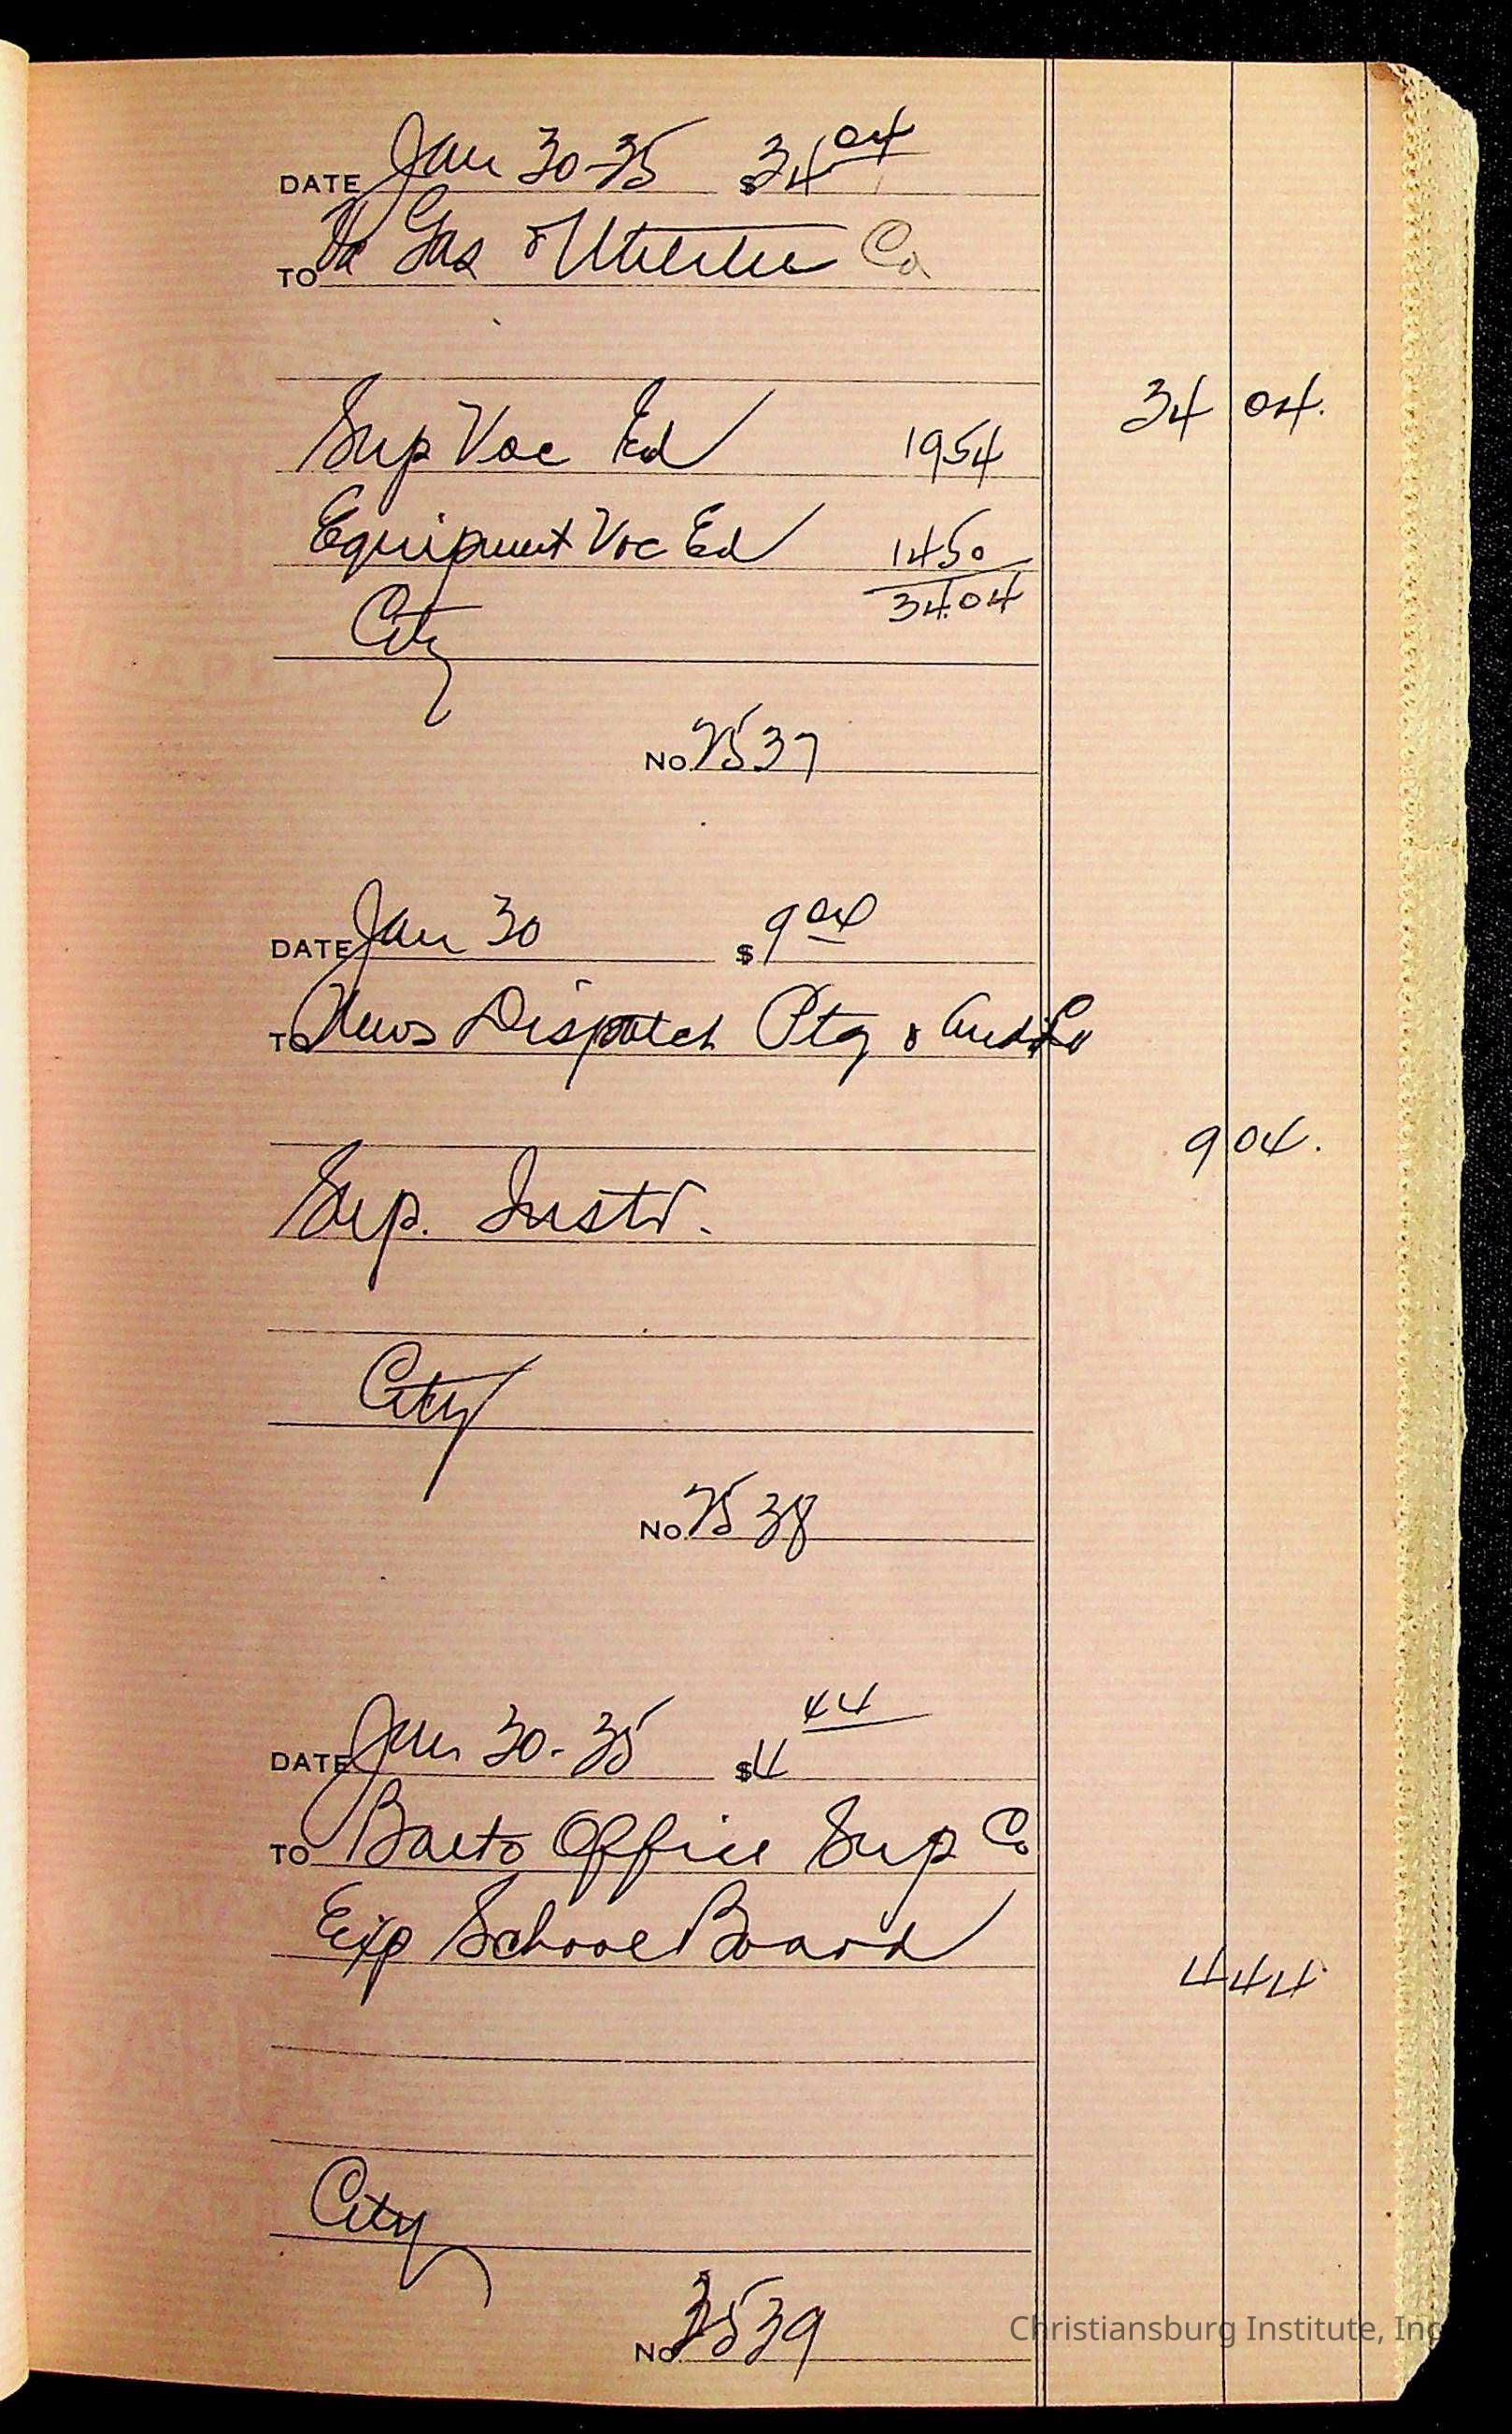 DATE Jan 30-35 $34 04
TO Va Gas & Utilities Co
34 04.
Sup Voc Ed 1954
Equipment Voc Ed 1450
34.04
City
No. 7537
DATE Jan 30 $9 04
TO News Dispatch Ptg & Co
9 04.
Sup. Instr.
City
No. 7538
DATE Jan 30-35 $4 44
TO Balto Office Sup Co
Exp School Board
4 44
City
No. 7539
Christiansburg Institute, Inc